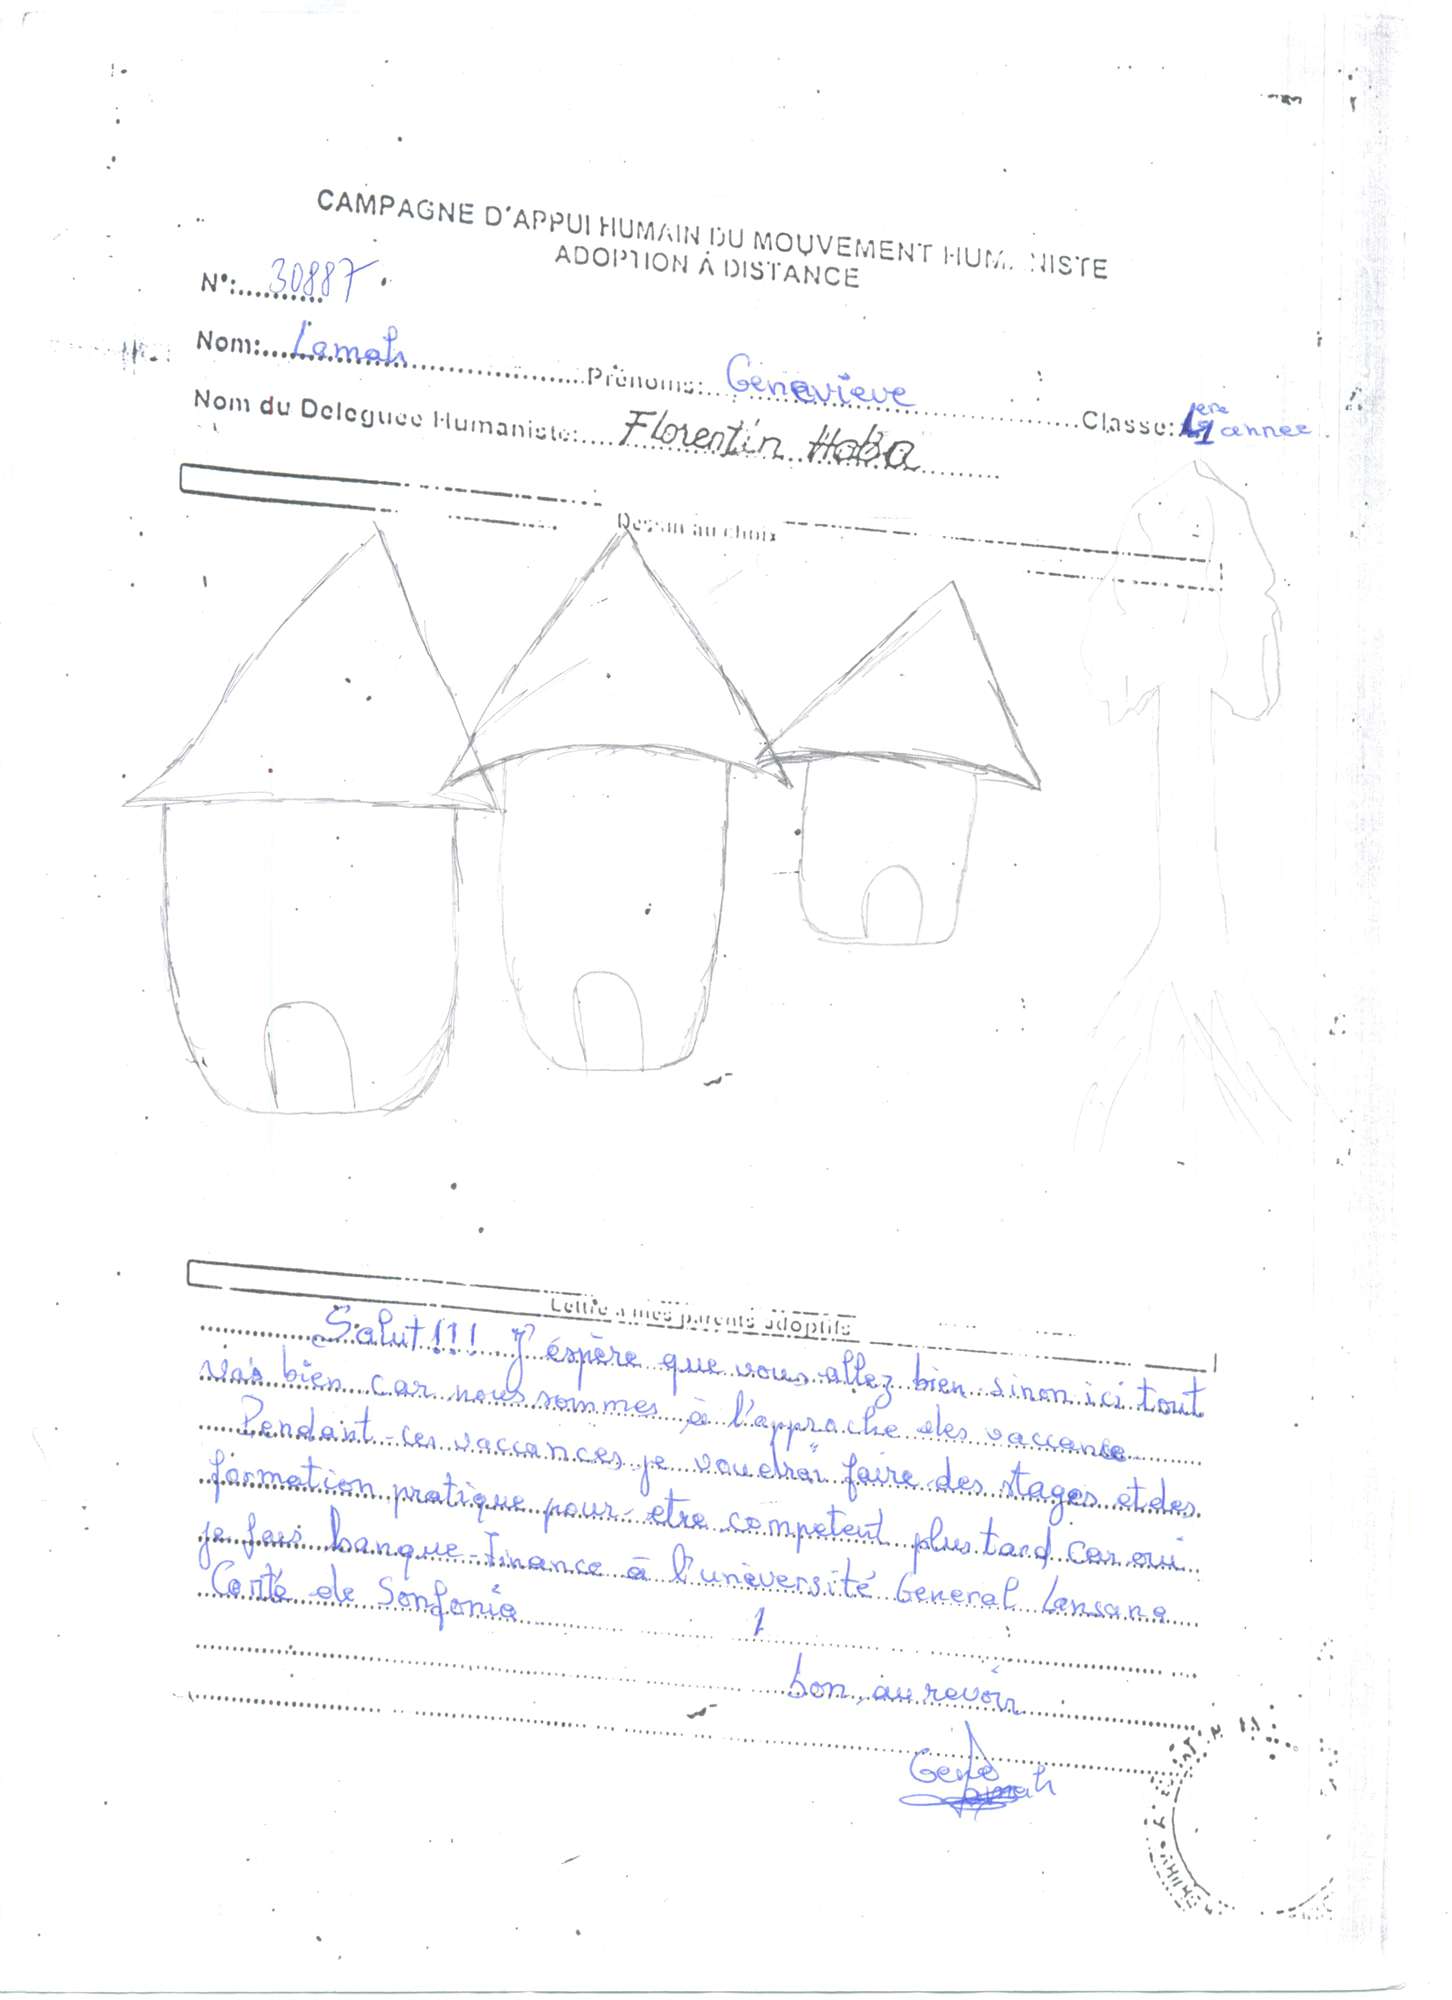 CAMPAGNE D'APPUI HUMAIN DU MOUVEMENT HUMANISTE
ADOPTION À DISTANCE
N°: 30887
Nom: Lamah Prénoms: Genevieve Classe: L1 1ere annee
Nom du Deleguee Humaniste: Florentin Haba
Dessin au choix
Lettre a mes parents adoptifs
Salut!!! J'éspère que vous allez bien sinon ici tout
vas bien car nous sommes à l'approche des vaccance
Pendant ces vaccances je voudrai faire des stages et des
formation pratique pour etre competent plus tard car oui
je fais banque-Finance à l'university General Lansana
Conté de Sonfonia
bon, au revoir
Gene